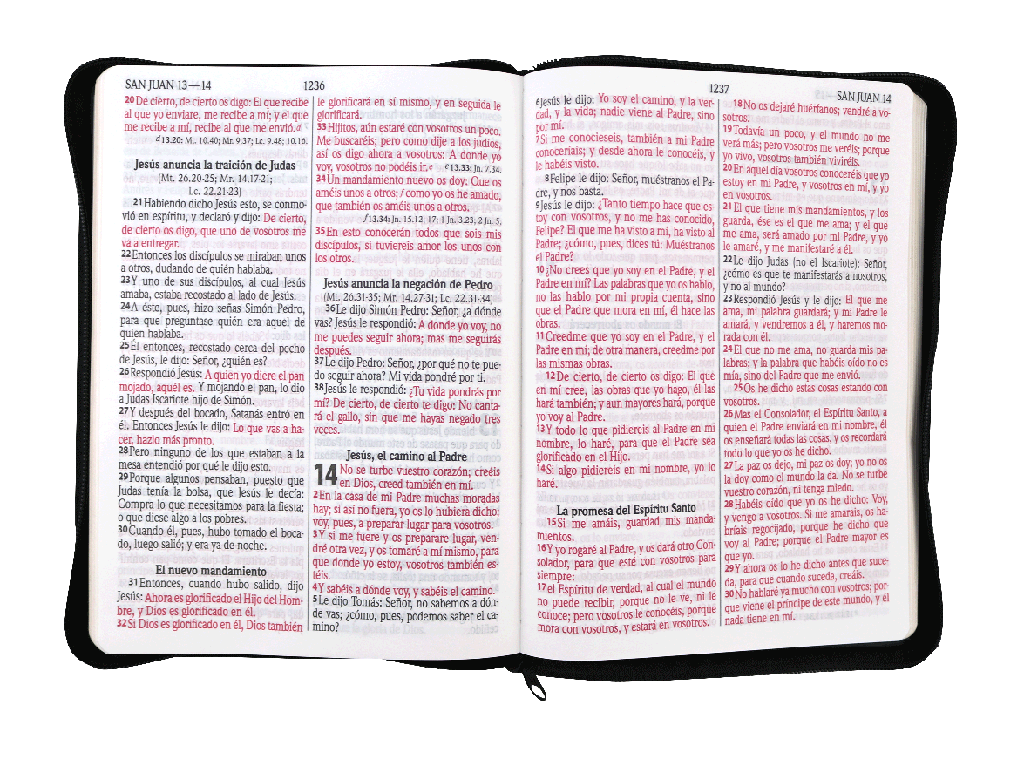 SAN JUAN 13—14
1236
20 De cierto, de cierto os digo: El que recibe
al que yo enviare, me recibe a mí; y el que
me recibe a mí, recibe al que me envió.d
d 13:20: Mt. 10.40; Mr. 9.37; Lc. 9.48; 10.16.
Jesús anuncia la traición de Judas
(Mt. 26.20-25; Mr. 14.17-21;
Lc. 22.21-23)
21 Habiendo dicho Jesús esto, se conmo-
vió en espíritu, y declaró y dijo: De cierto,
de cierto os digo, que uno de vosotros me
va a entregar.
22 Entonces los discípulos se miraban unos
a otros, dudando de quién hablaba.
23 Y uno de sus discípulos, al cual Jesús
amaba, estaba recostado al lado de Jesús.
24 A éste, pues, hizo señas Simón Pedro,
para que preguntase quién era aquel de
quien hablaba.
25 Él entonces, recostado cerca del pecho
de Jesús, le dijo: Señor, ¿quién es?
26 Respondió Jesús: A quien yo diere el pan
mojado, aquél es. Y mojando el pan, lo dio
a Judas Iscariote hijo de Simón.
27 Y después del bocado, Satanás entró en
él. Entonces Jesús le dijo: Lo que vas a ha-
cer, hazlo más pronto.
28 Pero ninguno de los que estaban a la
mesa entendió por qué le dijo esto.
29 Porque algunos pensaban, puesto que
Judas tenía la bolsa, que Jesús le decía:
Compra lo que necesitamos para la fiesta;
o que diese algo a los pobres.
30 Cuando él, pues, hubo tomado el boca-
do, luego salió; y era ya de noche.
El nuevo mandamiento
31 Entonces, cuando hubo salido, dijo
Jesús: Ahora es glorificado el Hijo del Hom-
bre, y Dios es glorificado en él.
32 Si Dios es glorificado en él, Dios también
le glorificará en sí mismo, y en seguida le
glorificará.
33 Hijitos, aún estaré con vosotros un poco.
Me buscaréis; pero como dije a los judíos,
así os digo ahora a vosotros: A donde yo
voy, vosotros no podéis ir.e
e 13.33: Jn. 7.34.
34 Un mandamiento nuevo os doy: Que os
améis unos a otros;f como yo os he amado,
que también os améis unos a otros.
f 13.34: Jn. 15.12, 17; 1 Jn. 3.23; 2 Jn. 5.
35 En esto conocerán todos que sois mis
discípulos, si tuviereis amor los unos con
los otros.
Jesús anuncia la negación de Pedro
(Mt. 26.31-35; Mr. 14.27-31; Lc. 22.31-34)
36 Le dijo Simón Pedro: Señor, ¿a dónde
vas? Jesús le respondió: A donde yo voy, no
me puedes seguir ahora; mas me seguirás
después.
37 Le dijo Pedro: Señor, ¿por qué no te pue-
do seguir ahora? Mi vida pondré por ti.
38 Jesús le respondió: ¿Tu vida pondrás por
mí? De cierto, de cierto te digo: No canta-
rá el gallo, sin que me hayas negado tres
veces.
Jesús, el camino al Padre
14 No se turbe vuestro corazón; creéis
en Dios, creed también en mí.
2 En la casa de mi Padre muchas moradas
hay; si así no fuera, yo os lo hubiera dicho;
voy, pues, a preparar lugar para vosotros.
3 Y si me fuere y os preparare lugar, ven-
dré otra vez, y os tomaré a mí mismo, para
que donde yo estoy, vosotros también es-
téis.
4 Y sabéis a dónde voy, y sabéis el camino.
5 Le dijo Tomás: Señor, no sabemos a dón-
de vas; ¿cómo, pues, podemos saber el ca-
mino?
1237
SAN JUAN 14
6 Jesús le dijo: Yo soy el camino, y la ver-
dad, y la vida; nadie viene al Padre, sino
por mí.
7 Si me conocieseis, también a mi Padre
conoceríais; y desde ahora le conocéis, y
le habéis visto.
8 Felipe le dijo: Señor, muéstranos el Pa-
dre, y nos basta.
9 Jesús le dijo: ¿Tanto tiempo hace que es-
toy con vosotros, y no me has conocido,
Felipe? El que me ha visto a mí, ha visto al
Padre; ¿cómo, pues, dices tú: Muéstranos
el Padre?
10 ¿No crees que yo soy en el Padre, y el
Padre en mí? Las palabras que yo os hablo,
no las hablo por mi propia cuenta, sino
que el Padre que mora en mí, él hace las
obras.
11 Creedme que yo soy en el Padre, y el
Padre en mí; de otra manera, creedme por
las mismas obras.
12 De cierto, de cierto os digo: El que
en mí cree, las obras que yo hago, él las
hará también; y aun mayores hará, porque
yo voy al Padre.
13 Y todo lo que pidiereis al Padre en mi
nombre, lo haré, para que el Padre sea
glorificado en el Hijo.
14 Si algo pidiereis en mi nombre, yo lo
haré.
La promesa del Espíritu Santo
15 Si me amáis, guardad mis manda-
mientos.
16 Y yo rogaré al Padre, y os dará otro Con-
solador, para que esté con vosotros para
siempre:
17 el Espíritu de verdad, al cual el mundo
no puede recibir, porque no le ve, ni le
conoce; pero vosotros le conocéis, porque
mora con vosotros, y estará en vosotros.
18 No os dejaré huérfanos; vendré a vo-
sotros.
19 Todavía un poco, y el mundo no me
verá más; pero vosotros me veréis; porque
yo vivo, vosotros también viviréis.
20 En aquel día vosotros conoceréis que yo
estoy en mi Padre, y vosotros en mí, y yo
en vosotros.
21 El que tiene mis mandamientos, y los
guarda, ése es el que me ama; y el que
me ama, será amado por mi Padre, y yo
le amaré, y me manifestaré a él.
22 Le dijo Judas (no el Iscariote): Señor,
¿cómo es que te manifestarás a nosotros,
y no al mundo?
23 Respondió Jesús y le dijo: El que me
ama, mi palabra guardará; y mi Padre le
amará, y vendremos a él, y haremos mo-
rada con él.
24 El que no me ama, no guarda mis pa-
labras; y la palabra que habéis oído no es
mía, sino del Padre que me envió.
25 Os he dicho estas cosas estando con
vosotros.
26 Mas el Consolador, el Espíritu Santo, a
quien el Padre enviará en mi nombre, él
os enseñará todas las cosas, y os recordará
todo lo que yo os he dicho.
27 La paz os dejo, mi paz os doy; yo no os
la doy como el mundo la da. No se turbe
vuestro corazón, ni tenga miedo.
28 Habéis oído que yo os he dicho: Voy,
y vengo a vosotros. Si me amarais, os ha-
bríais regocijado, porque he dicho que
voy al Padre; porque el Padre mayor es
que yo.
29 Y ahora os lo he dicho antes que suce-
da, para que cuando suceda, creáis.
30 No hablaré ya mucho con vosotros; por-
que viene el príncipe de este mundo, y él
nada tiene en mí.